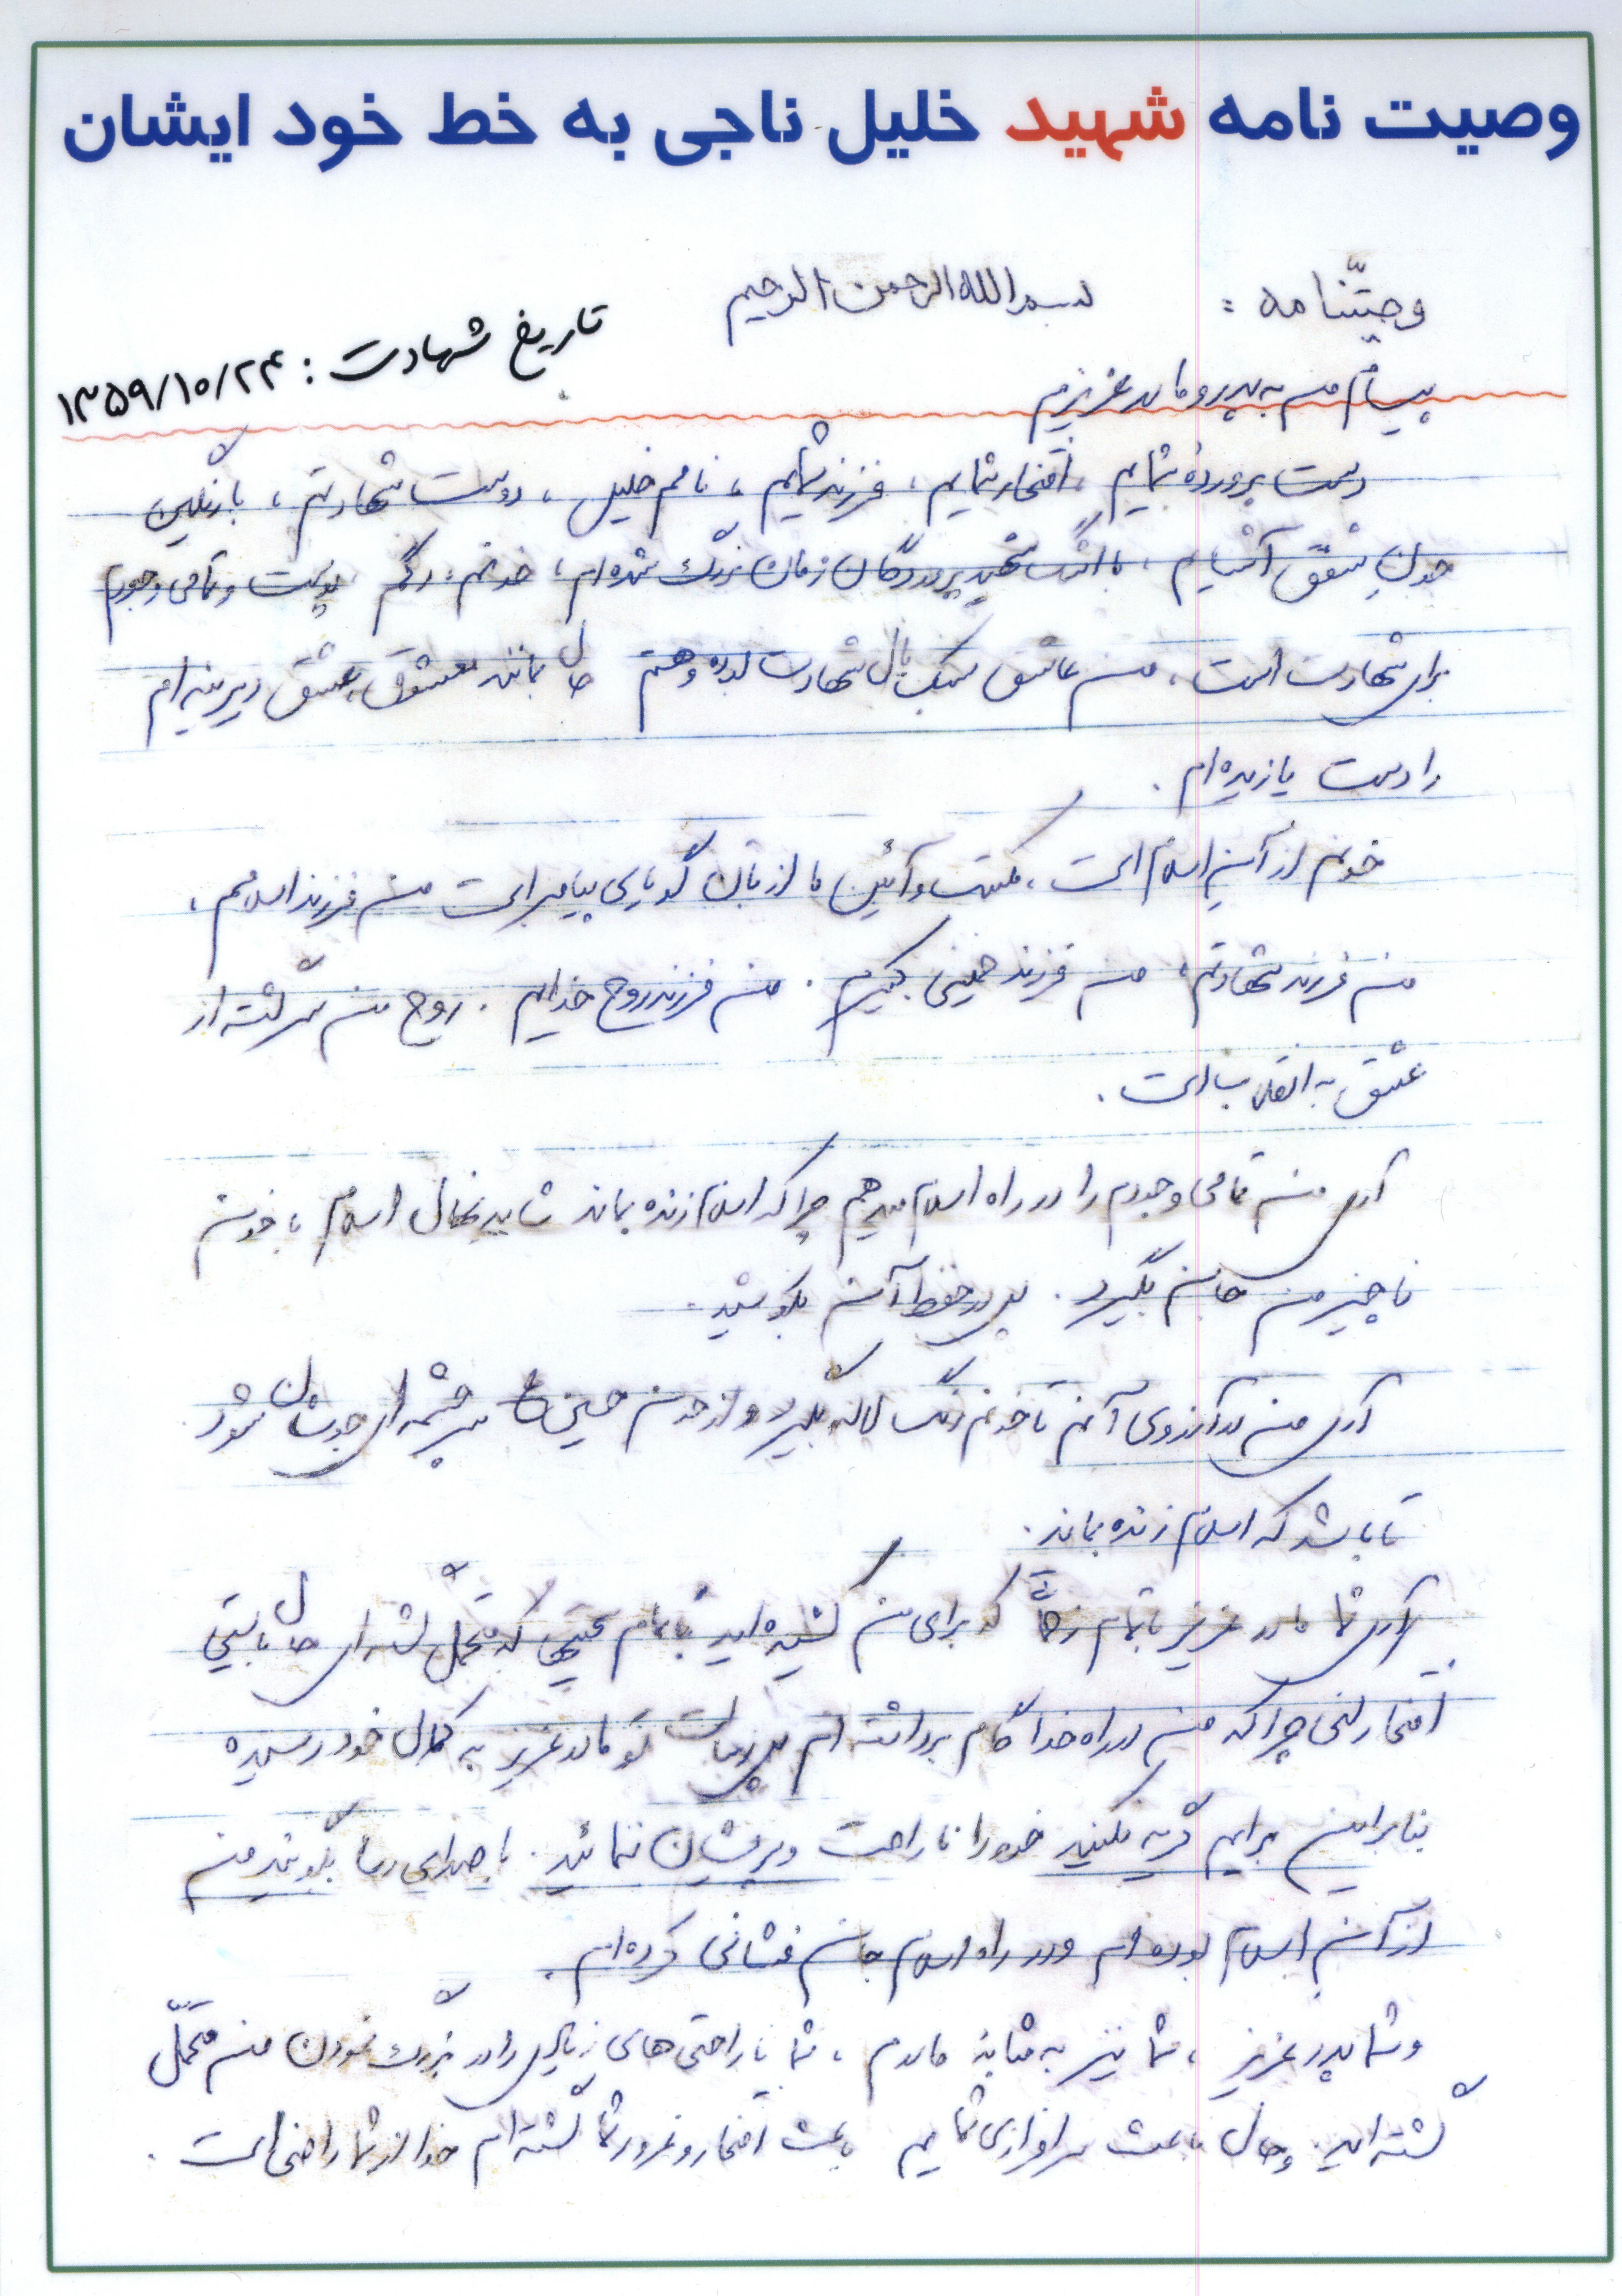 وصیت نامه شهید خلیل ناجی به خط خود ایشان
وصیّتنامه : بسم الله الرحمن الرحیم
تاریخ شهادت : ۱۳۵۹/۱۰/۲۴
پیام من به پدر و مادر عزیزم
دست پروردهٔ شمایم ، افتخار شمایم ، فرزند شمایم ، نامم خلیل ، دوست شهادتم ، با رنگین
خون شفق آشنایم ، با اشک شهید پرور دگان زمان بزرگ شده‌ام ، خونم ، رگم پوست و تمامی وجودم
برای شهادت است ، من عاشق سبک بال شهادت بوده و هستم حال بمانند معشوق ، عشق دیرینه‌ام
را دست یازیده‌ام .
خونم از آنِ اسلام است ، مکتب و آئین ما از زبان گویایی پیامبر است من فرزند اسلامم ،
من فرزند شهادتم ، من فرزند خمینی کبیرم . من فرزند روح خدایم . روح من سرشته از
عشق به انقلاب است .
آری من تمامی وجودم را در راه اسلام میدهم چرا که اسلام زنده بماند شاید نهال اسلام با خون
ناچیز من جان بگیرد . پس در حفظ آن بکوشید .
آری من در آرزوی آنم تا خونم رنگ لاله بگیرد و از خون حسین ع سرچشمه‌ای جوشان شود
تا باشد که اسلام زنده بماند .
آری شما مادر عزیز با تمام که برای من کشیده‌اید با تمام که متحمل گشته‌ای حال بایستی
افتخار کنی چرا که من در راه خدا گام برداشته‌ام پس رسالت تو مادر عزیز به کمال خود رسیده
بنابراین برایم گریه نکنید خود را ناراحت و پریشان ننمائید . با صدای رسا بگوئید من
از آنِ اسلام بوده‌ام و در راه اسلام جان فشانی کرده‌ام .
و شما پدر عزیز ، شما نیز به مثابهٔ مادرم ، شما ناراحتی‌های زیادی را در بزرگ نمودن من متحمّل
گشته‌اید و حال باعث سرافرازی شمایم باعث افتخار و غرور شما گشته‌ام خدا از شما راضی است .